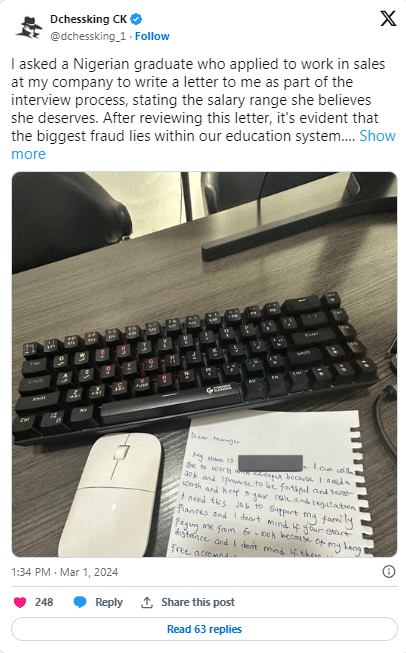 Dchessking CK
@dchessking_1 · Follow
I asked a Nigerian graduate who applied to work in sales
at my company to write a letter to me as part of the
interview process, stating the salary range she believes
she deserves. After reviewing this letter, it's evident that
the biggest fraud lies within our education system.... Show
more
Dear Manager
My name is I am
to work because I need a
Job and I promise to be faithful and
worth and keep to your rules and regulation
I need this job to support my family
finances and I don't mind if your start
paying me from 60 - 100k because of my
distance and I don't mind if there
free
1:34 PM · Mar 1, 2024
248 Reply Share this post
Read 63 replies